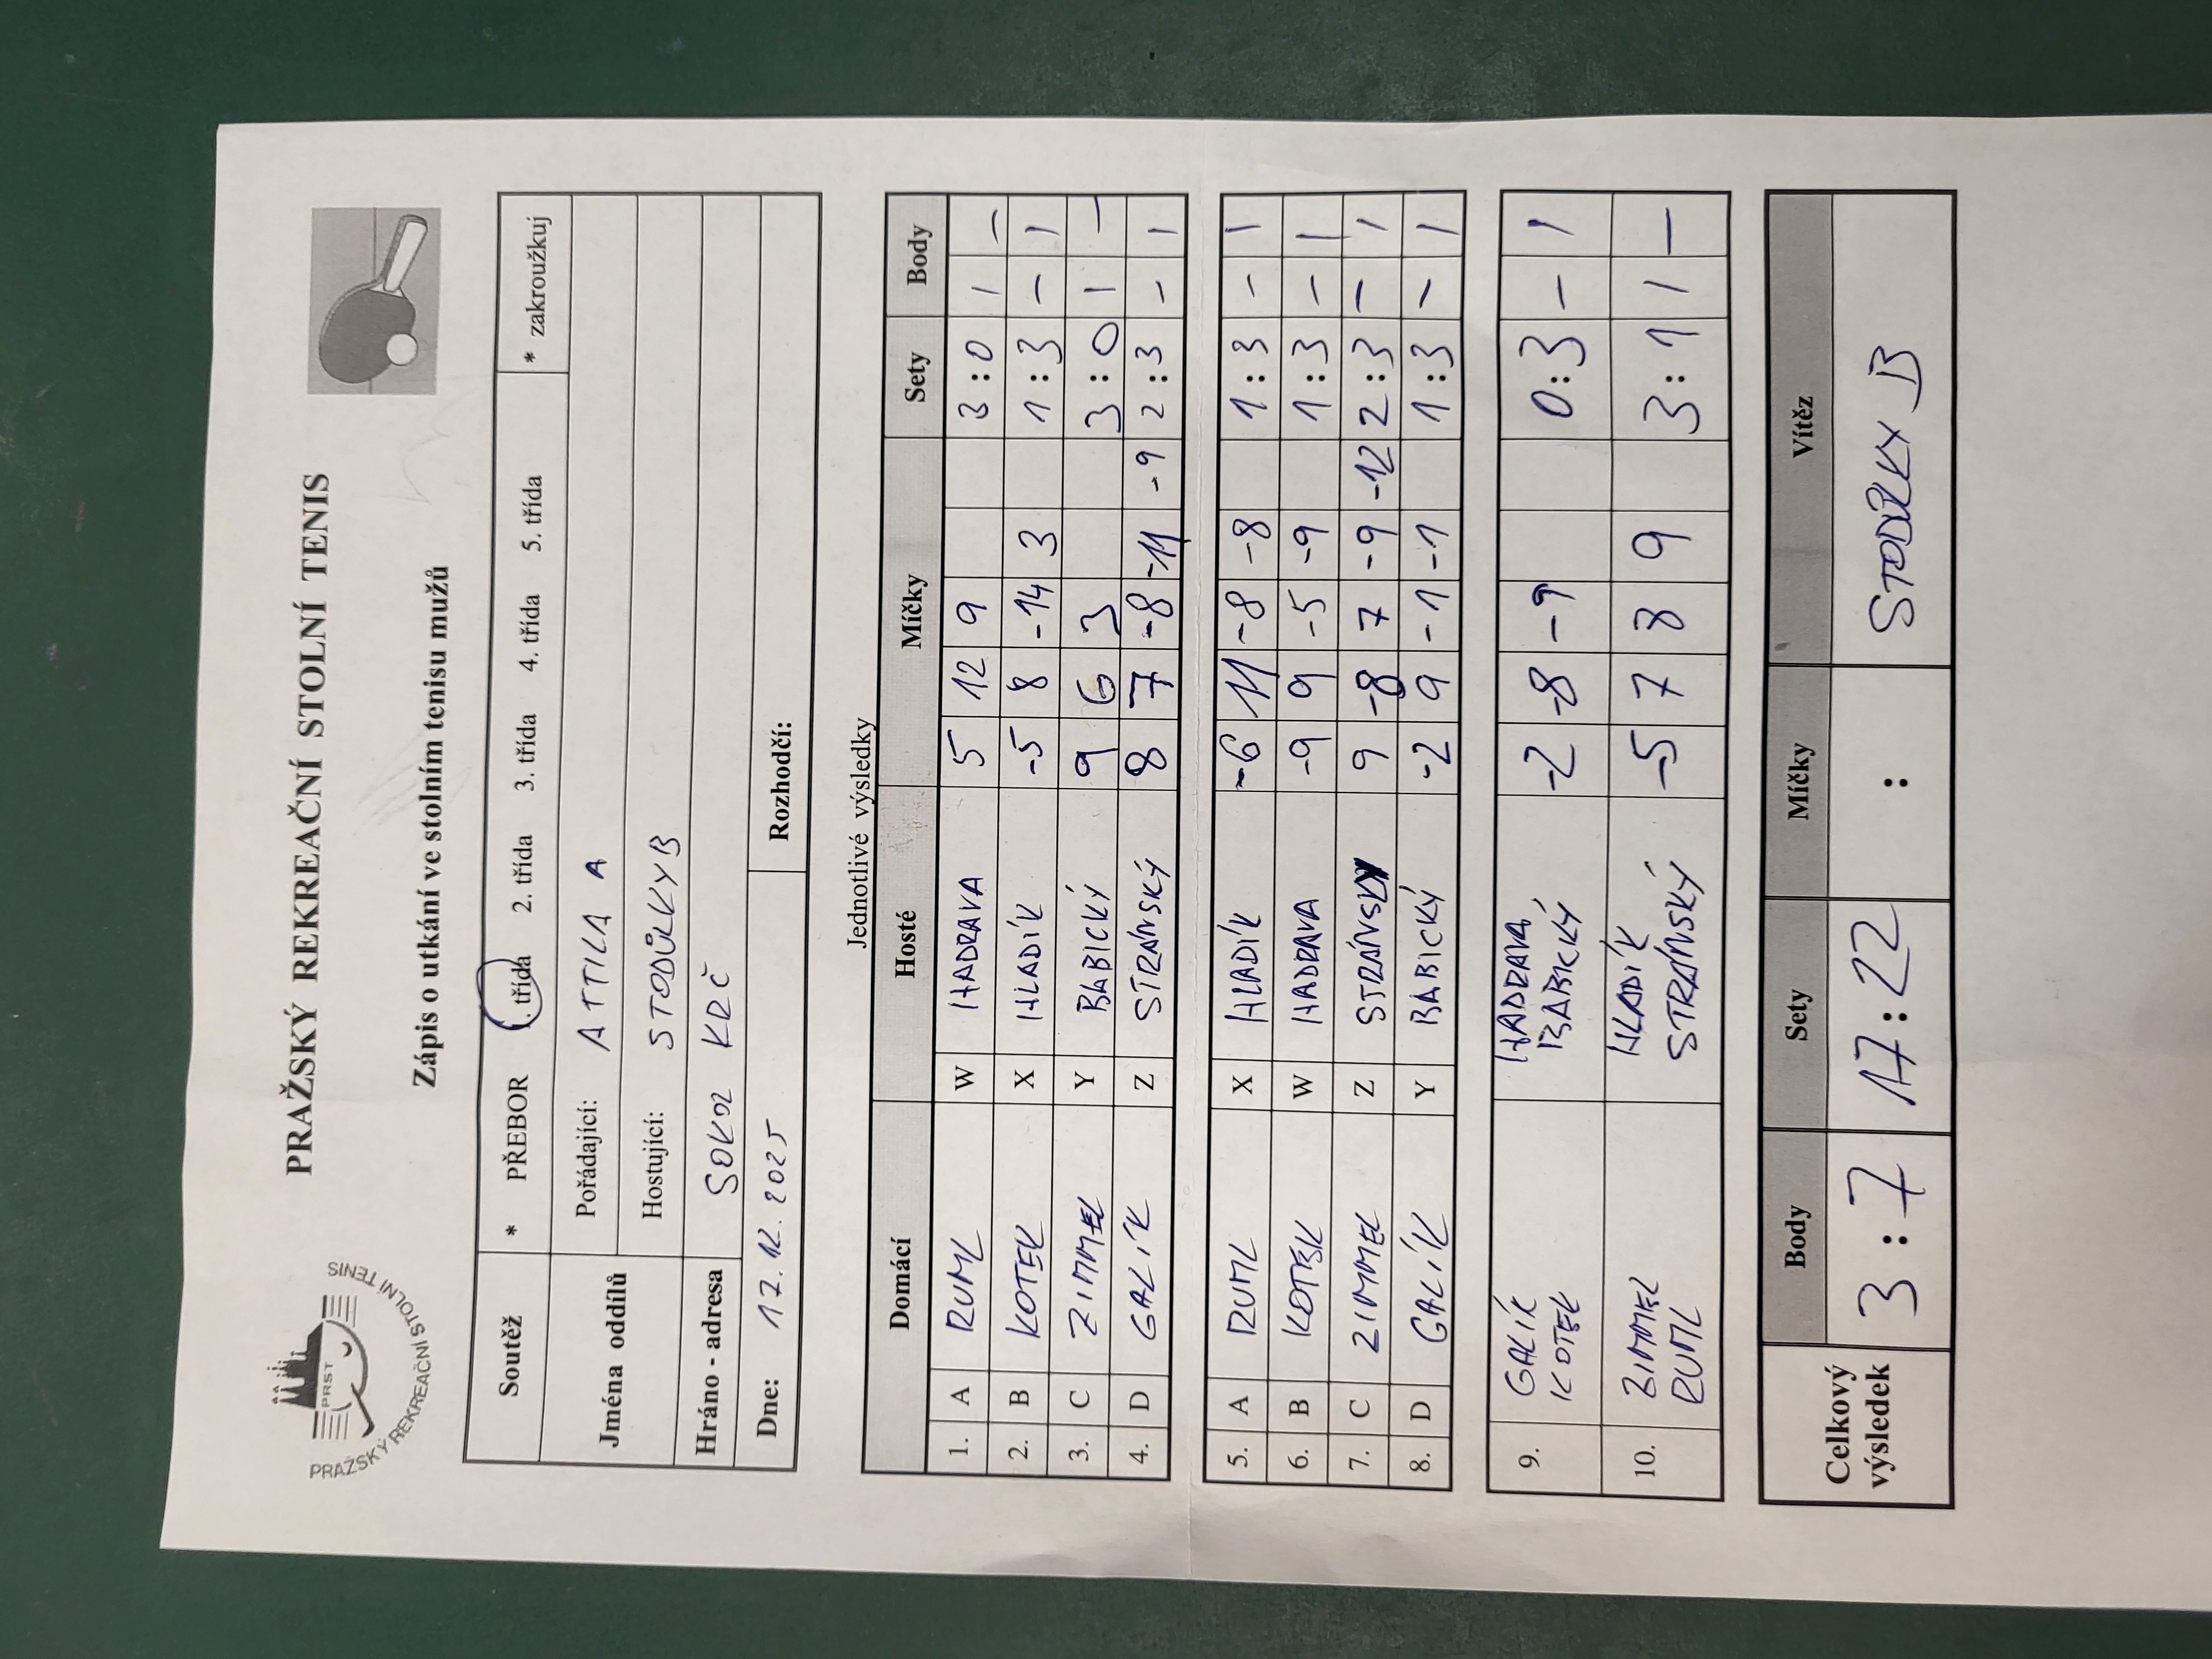 PRAŽSKÝ REKREAČNÍ STOLNÍ TENIS
PRST
PRAŽSKÝ REKREAČNÍ STOLNÍ TENIS
Zápis o utkání ve stolním tenisu mužů
Soutěž * PŘEBOR 1. třída 2. třída 3. třída 4. třída 5. třída * zakroužkuj
Jména oddílů
Pořádající: ATTILA A
Hostující: STODŮLKY B
Hráno - adresa SOKOL KRČ
Dne: 17. 12. 2025 Rozhodčí:
Jednotlivé výsledky
Domácí Hosté Míčky Sety Body
1. A RUML W HADRAVA 5 12 9 3 : 0 1 –
2. B KOTEK X HLADÍK -5 8 -14 3 1 : 3 – 1
3. C ZIMMEL Y BABICKÝ 9 6 3 3 : 0 1 –
4. D GALÍK Z STRÁNSKÝ 8 7 -8 -11 -9 2 : 3 – 1
5. A RUML X HLADÍK -6 11 -8 -8 1 : 3 – 1
6. B KOTEK W HADRAVA -9 9 -5 -9 1 : 3 – 1
7. C ZIMMEL Z STRÁNSKÝ 9 -8 7 -9 -12 2 : 3 – 1
8. D GALÍK Y BABICKÝ -2 9 -1 -1 1 : 3 – 1
9. GALÍK HADRAVA, -2 -8 -9 0 : 3 – 1
KOTEK BABICKÝ
10. ZIMMEL HLADÍK -5 7 8 9 3 : 1 1 –
RUML STRÁNSKÝ
Celkový výsledek
Body Sety Míčky Vítěz
3 : 7 17 : 22 : STODŮLKY B